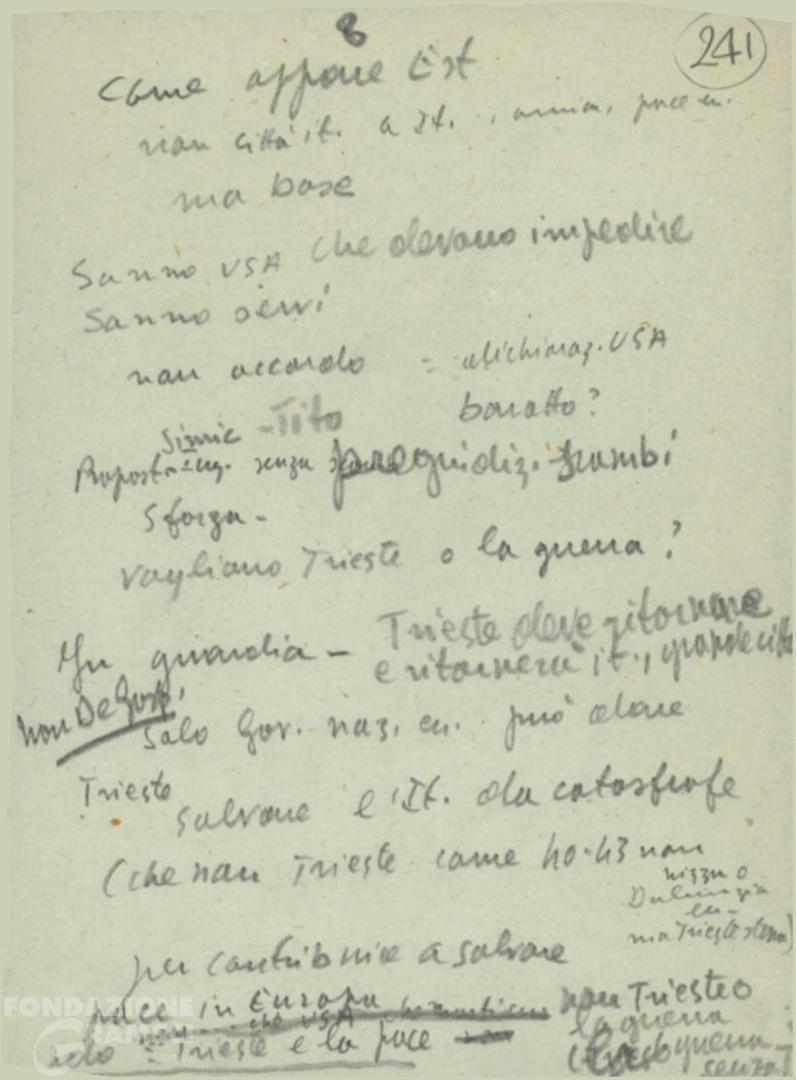 8
241
Come appare Est
non città it. a It., amm. pace ecc.
ma base
Sanno USA che devono impedire
Sanno servi
non accordo = dichiaraz. USA
baratto?
Simic - Tito
Propost. ing. senza pregiudiz. scambi
Sforza -
Vogliamo Trieste o la guerra?
In guardia - Trieste deve ritornare
e ritornerà it., grande città
non De Gasp.
Solo Gov. naz. ecc. può dare
Trieste
salvare l'It. da catastrofe
(che non Trieste come 40-43 non
Nizza o
Dalmazia
ecc.
ma Trieste stessa)
per contribuire a salvare
pace in Europa
non Trieste o
la guerra
solo = Trieste e la pace
guerra
senza
FONDAZIONE
GRAMSCI